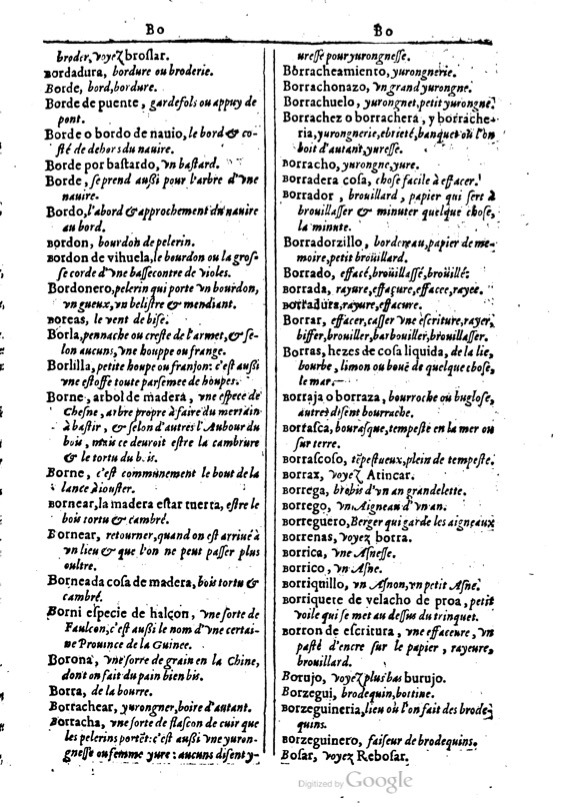 Bo
broder, voyez broslar.
Bordadura, bordure ou broderie.
Borde, bord, bordure.
Borde de puente, gardefols ou appuy de
pont.
Borde o bordo de nauio, le bord & co-
sté de dehors du nauire.
Borde por bastardo, vn bastard.
Borde, se prend außi pour l'arbre d'vne
nauire.
Bordo, l'abord & approchement du nauire
au bord.
Bordon, bourdon de pelerin.
Bordon de vihuela, le bourdon ou la gros-
se corde d'vne bassecontre de violes.
Bordonero, pelerin qui porte vn bourdon,
vn gueux, vn belistre & mendiant.
Boreas, le vent de bise.
Borla, pennache ou creste de l'armet, & se-
lon aucuns, vne houppe ou frange.
Borlilla, petite houpe ou franjon: c'est außi
vne estoffe toute parsemee de houpes.
Borne, arbol de madera, vne espece de
Chesne, arbre propre à faire du merrain
à bastir, & selon d'autres l'Aubour du
bois, mais ce deuroit estre la cambrure
& le tortu du bois.
Borne, c'est communement le bout de la
lance à iouster.
Bornear, la madera estar tuerta, estre le
bois tortu & cambré.
Bornear, retourner, quand on est arriué à
vn lieu & que l'on ne peut passer plus
oultre.
Borneada cosa de madera, bois tortu &
cambré.
Borni especie de halçon, vne sorte de
Faulcon, c'est außi le nom d'vne certai-
ne Prouince de la Guinee.
Borona, vne sorre de grain en la Chine,
dont on fait du pain bien bis.
Borra, de la bourre.
Borrachear, yurongner, boire d'autant.
Borracha, vne sorte de flascon de cuir que
les pelerins portẽt: c'est außi vne yuron-
gnesse ou femme yure: aucuns disent y-
Bo
uresse pour yurongnesse.
Borracheamiento, yurongnerie.
Borrachonazo, vn grand yurongne.
Borrachuelo, yurongnet, petit yurongne.
Borrachez o borrachera, y borrache-
ria, yurongnerie, ebrieté, banquet où l'on
boit d'autant, yuresse.
Borracho, yurongne, yure.
Borradera cosa, chose facile à effacer.
Borrador, brouillard, papier qui sert à
brouillasser & minuter quelque chose,
la minute.
Borradorzillo, bordereau, papier de me-
moire, petit broüillard.
Borrado, effacé, broüillassé, broüillé.
Borrada, rayure, effaçure, effacee, rayee.
Borradura, rayure, effacure.
Borrar, effacer, casser vne escriture, rayer,
biffer, brouiller, barbouiller, brouillasser.
Borras, hezes de cosa liquida, de la lie,
bourbe, limon ou bouë de quelque chose,
le mar.
Borraja o borraza, bourroche ou buglose,
autres disent bourrache.
Borrasca, bourasque, tempeste en la mer ou
sur terre.
Borrascoso, tẽpestueux, plein de tempeste.
Borrax, voyez Atincar.
Borrega, brebis d'vn an grandelette.
Borrego, vn Aigneau d'vn an.
Borreguero, Berger qui garde les aigneaux
Borrenas, voyez borra.
Borrica, vne Asnesse.
Borrico, vn Asne.
Borriquillo, vn Asnon, vn petit Asne.
Borriquete de velacho de proa, petit
voile qui se met au dessus du trinquet.
Borron de escritura, vne effaceure, vn
pasté d'encre sur le papier, rayeure,
brouillard.
Borujo, voyez plus bas burujo.
Borzegui, brodequin, bottine.
Borzeguineria, lieu où l'on fait des brode-
quins.
Borzeguinero, faiseur de brodequins.
Bosar, voyez Rebosar.
Digitized by Google